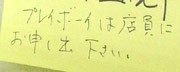 プレイボーイは店員に
お申し出下さい。